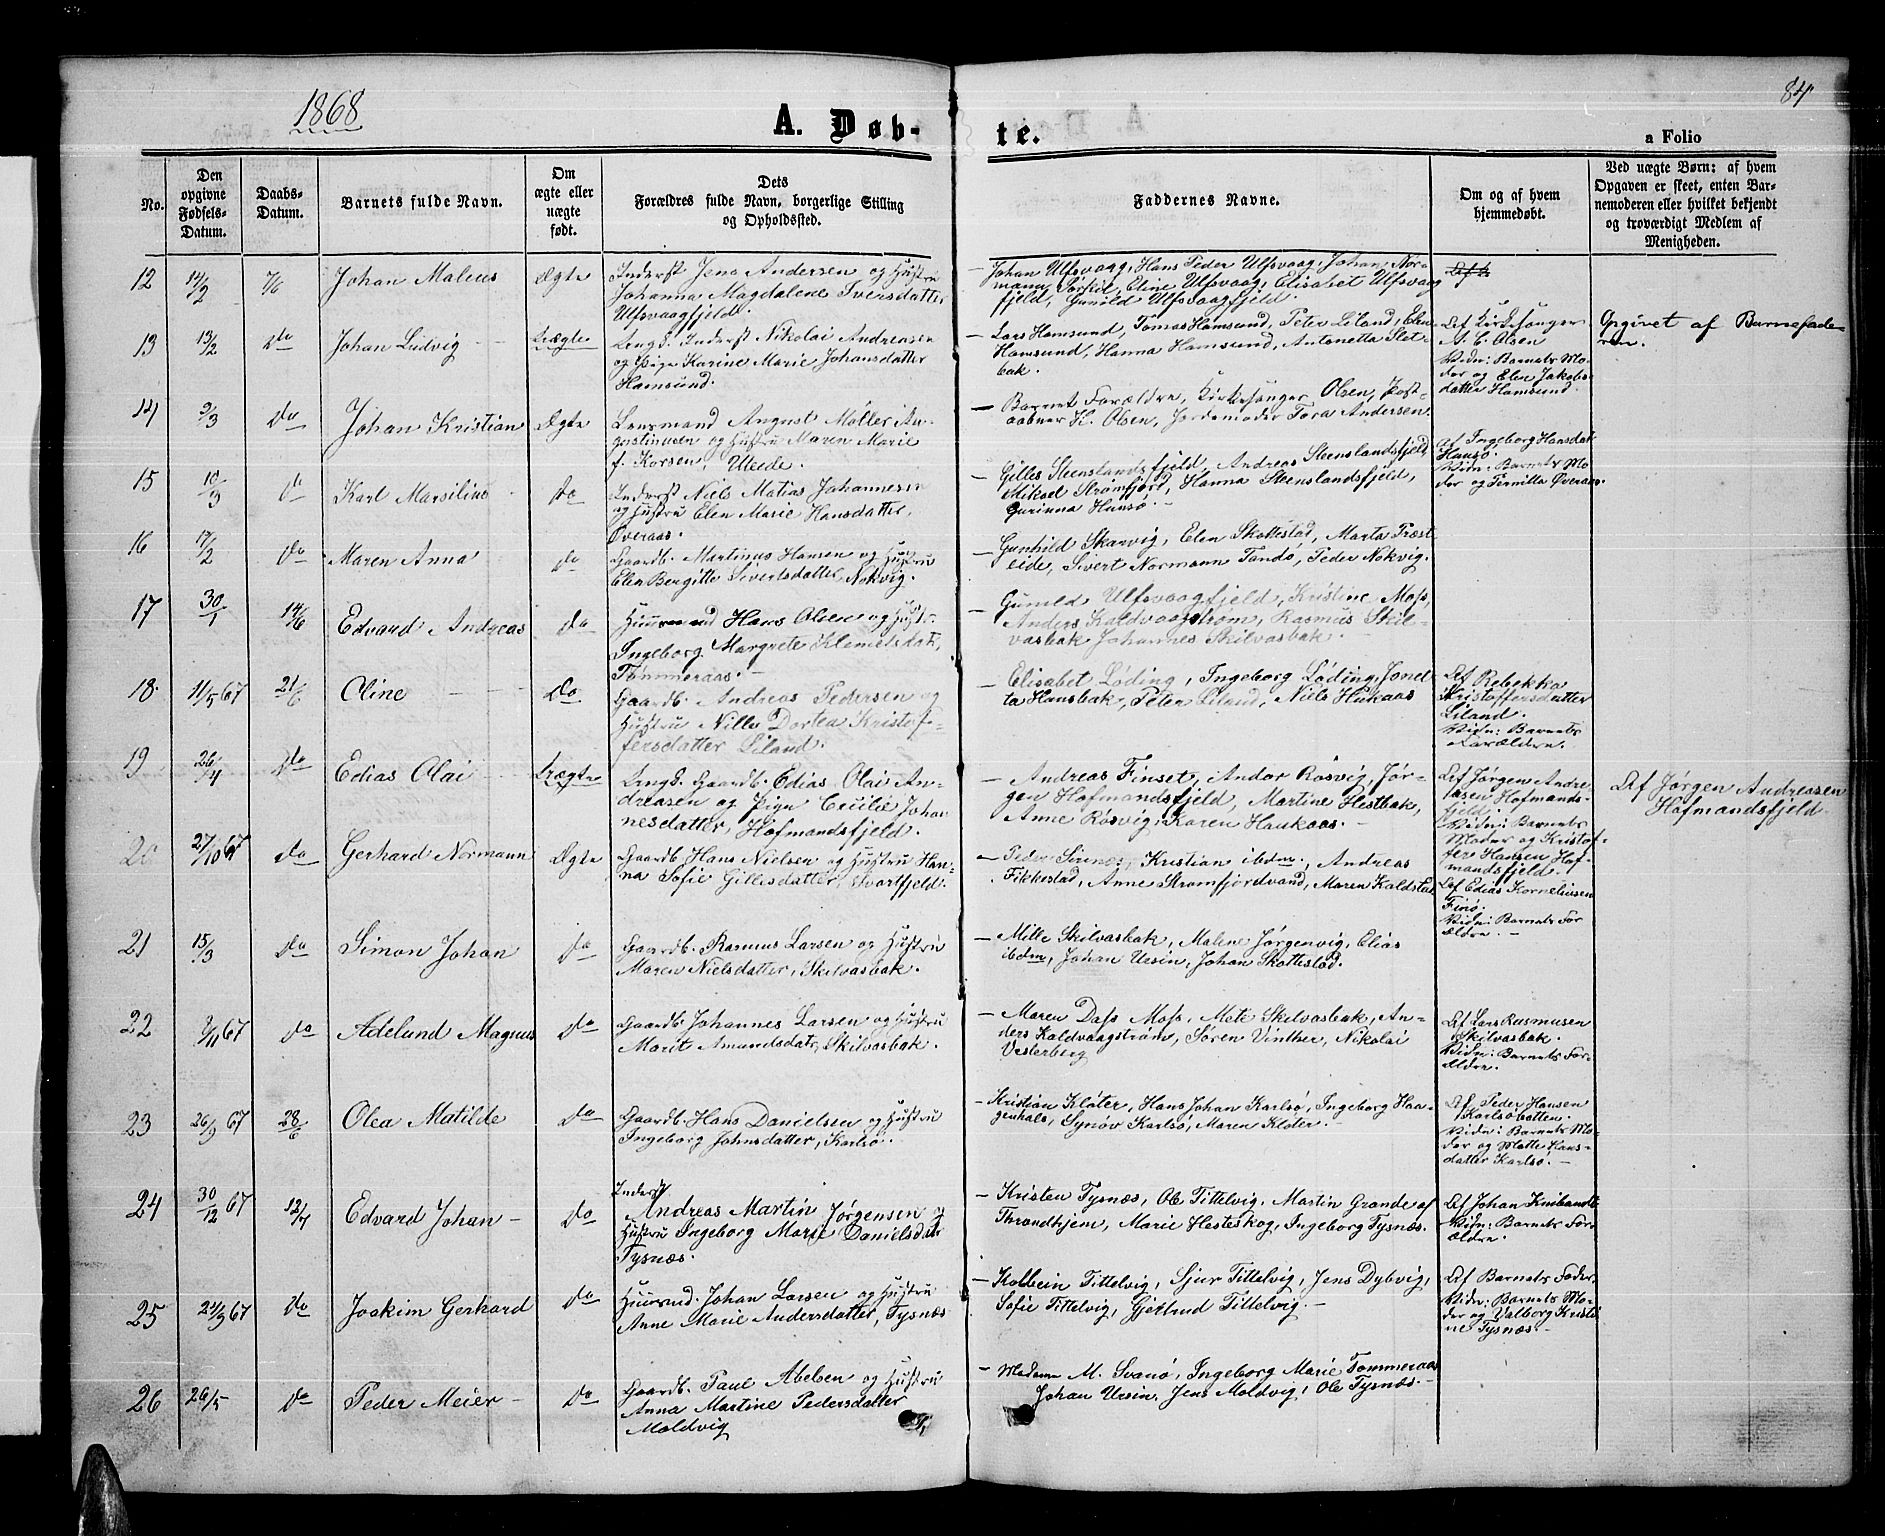 1868
84
A. Døb-
te.
a Folio
No.
Den
opgivne
Fødsels-
Datum.
Daabs-
Datum.
Barnets fulde Navn.
Om
ægte eller
uægte
født.
Dets
Forældres fulde Navn, borgerlige Stilling
og Opholdssted.
Faddernes Navne.
Om og af hvem
hjemmedøbt.
Ved uægte Børn: af hvem
Opgaven er skeet, enten Bar-
nemoderen eller hvilket bekjendt
og troværdigt Medlem af
Menigheden.
12 14/2 7/6 Johan Maleus Ægte
Inderst Jens Andersen og Hustru
Johanna Magdalene Iversdatter
Ulfsvaagfjeld.
- Johan Ulfsvaag, Hans Peder Ulfsvaag, Johan Nor-
mann, Sørkil, Eline Ulfsvaag, Elisabet Ulfsvaag
fjeld, Gunild Ulfsvaagfjeld.
13 13/2 Do Johan Ludvig - - Uægte
Ungk. Inderst Nikolai Andreasen
og Pige Karine Marie Johansdatter
Hamsund.
- Lars Hamsund, Tomas Hamsund, Peter Liland, Elen
Hamsund, Hanna Hamsund, Antonetta Slet-
bak.
Af Kirkesanger
A. C. Olsen
Vidn: Barnets Mo-
der og Elen Jakobs-
datter Hamsund.
Opgivet af Barnefade-
ren.
14 9/3 Do Johan Kristian Ægte
Lensmand August Møller Au-
gustinusen og Hustru Maren Marie
f. Korsen, Uteede.
- Barnets Forældre, Kirkesanger Olsen, Post-
aabner H. Olsen, Jordemoder Tora Andersen.
15 10/3 Do Karl Marsilius Do
Inderst Niels Matias Johannesen
og Hustru Elen Marie Hansdatter,
Øveraas.
- Gilles Steenslandsfjeld, Andreas Steenslandsfjeld,
Mikael Strømfjord, Hanna Steenslandsfjeld,
Gurinna Hansø. -
af Ingeborg Hansdat
Hansø.
Vidn: Barnets Mo-
der og Pernilla Øveraas.
16 17/2 Do Maren Anna Do
Gaardb. Martinus Hansen og Hustru
Elen Bergitte Sivertsdatter, Nokvig.
- Gunhild Skarvig, Elen Skottestad, Marta Præst-
eide, Sivert Normann Tandø, Peder Nokvig.
17 30/1 14/6 Edvard Andreas Do
Huusmand Hans Olsen og Hustr.
Ingeborg Margrete Klemetsdat.
Tømmeraas. -
- Gunild Ulfsvaagfjeld, Kristine Moss,
Anders Kaldvaagstrøm, Rasmus Skil-
vasbak, Johannes Skilvasbak. -
18. 11/5 67 21/6 Oline - - Do
Gaardb. Andreas Pedersen og
Hustru Nille Dortea Kristof-
fersdatter Liland.
- Elisabet Løding, Ingeborg Løding, Jonet-
ta Hansbak, Peter Liland, Niels Hukaas
Af Rebekka
Kristoffersdatter
Liland.
Vidn: Barnets
Forældre.
19 26/4 Do Edias Olai - Uægte
Ungk. Gaardb. Edias Olai An-
dreasen og Pigen Cecilie Johan
nesdatter, Hofmandsfjeld.
- Andreas Finset, Andor Røsvig, Jør-
gen Hofmandsfjeld, Martine Hestbak,
Anne Røsvig, Karen Haukaas. -
Af Jørgen Andre
asen Hofmands-
fjeld.
Vidn: Barnets
Moder og Kristof-
fer Hansen Hof-
mandsfjeld.
Af Jørgen Andreasen
Hofmandsfjeld.
20 27/10 67 Do Gerhard Normann Ægte
Gaardb. Hans Nielsen og Hustru Han-
na Sofie Gillesdatter, Svartfjeld.
- Peder Sirenes, Kristian ibdm., Andreas
Fikkestad, Anne Strømfjordvand, Maren Kaldslet
Af Edias Korneliusen
Finø.
Vidn: Barnets For
ældre. -
21 15/3 Do Simon Johan Do
Gaardb. Rasmus Larsen og Hustru
Maren Nielsdatter, Skilvasbak.
- Mille Skilvasbak, Malene Jørgenvig, Elias
ibdm, Johan Ursin, Johan Skottestad.
22 9/11 67 Do Adelund Magnus Do
Gaardb. Johannes Larsen og Hustru
Marit Amundsdatr, Skilvasbak.
- Maren Dass Moss, Mete Skilvasbak, An-
ders Kaldvaagstrøm, Søren Vinther, Nikolai
Vesterberg
Af Lars Rasmusen
Skilvasbak.
Vidn: Barnets For-
ældre.
23 26/9 67 28/6 Olea Matilde Do
Gaardb. Hans Danielsen og Hustru
Ingeborg Johnsdatter, Karlsø.
- Kristian Kløter, Hans Johan Karlsø, Ingeborg Haa-
genhals, Synøv Karlsø, Maren Kløter. -
Af Peder Hansen
Karlsøbotten.
Vidn: Barnets Mo-
der og Mette Hans-
datter Karlsø. -
24 30/12 67 12/7 Edvard Johan - Do
Inderst
Andreas Martin Jørgensen og
Hustru Ingeborg Marie Danielsdatr
Tysnæs.
- Kristen Tysnæs, Ole Tittelvig, Martin Grande af
Throndhjem, Marie Hesteskog, Ingeborg Tysnæs.
Af Johan Knibandt
Vidn: Barnets For-
ældre.
25 24/9 67 Do Joakim Gerhard Do
Huusmd. Johan Larsen og Hustru
Anne Marie Andersdatter, Tysnæs
- Kolbein Tittelvig, Sjur Tittelvig, Jens Dybvig,
Sofie Tittelvig, Gjertrud Tittelvig. -
Af Barnets Fader.
Vidn: Barnets Mo-
der og Valborg Kristi
ne Tysnæs. -
26 26/5 Do Peder Meier - Do
Gaardb. Paul Abelsen og Hustru
Anna Martine Pedersdatter
Moldvig
- Madam M. Svanø, Ingeborg Marie Tømmeraas
Johan Ursin, Jens Moldvig, Ole Tysnæs. -